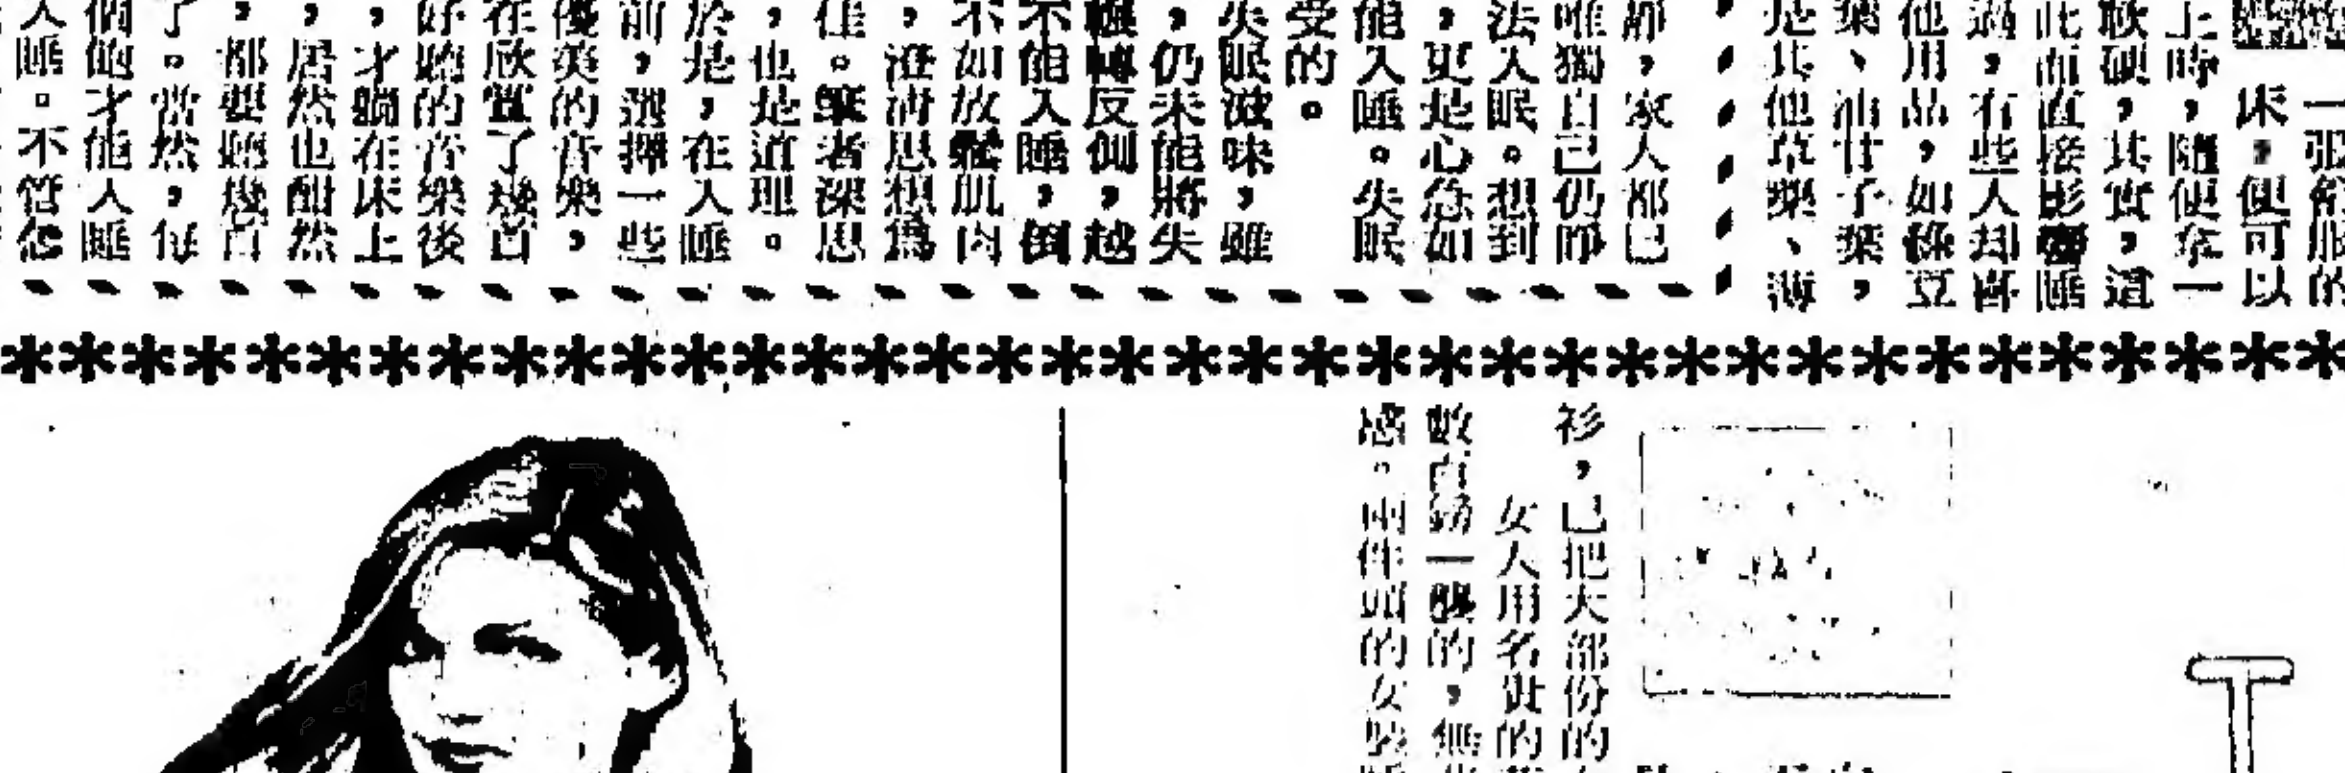 一張舒服的
床。便可以
上時,隨便拿一
軟硬,其實,這
此而直接影響睡
過,有些人却喜
他用品,如綠豆
葉、油甘子葉,
是其他草藥、薄
都,家人都已
唯獨自己仍睜
法入眠。想到
,更是心急如
能入睡。失眠
受的。
失眠滋味,雖
,仍未能將失
輾轉反側,越
不能入睡,倒
不如放鬆肌肉
,澄清思想爲
佳。筆者深思
,也是道理。
於是,在入睡
前,選擇一些
優美的音樂,
在欣賞了幾首
好聽的音樂後
,才躺在床上
,居然也酣然
,都要聽幾首
了。當然,每
個飽才能入睡
入睡。不管怎
衫,已把大部份的
女人用名貴的
數百磅一襲的,無
感。兩件頭的女裝